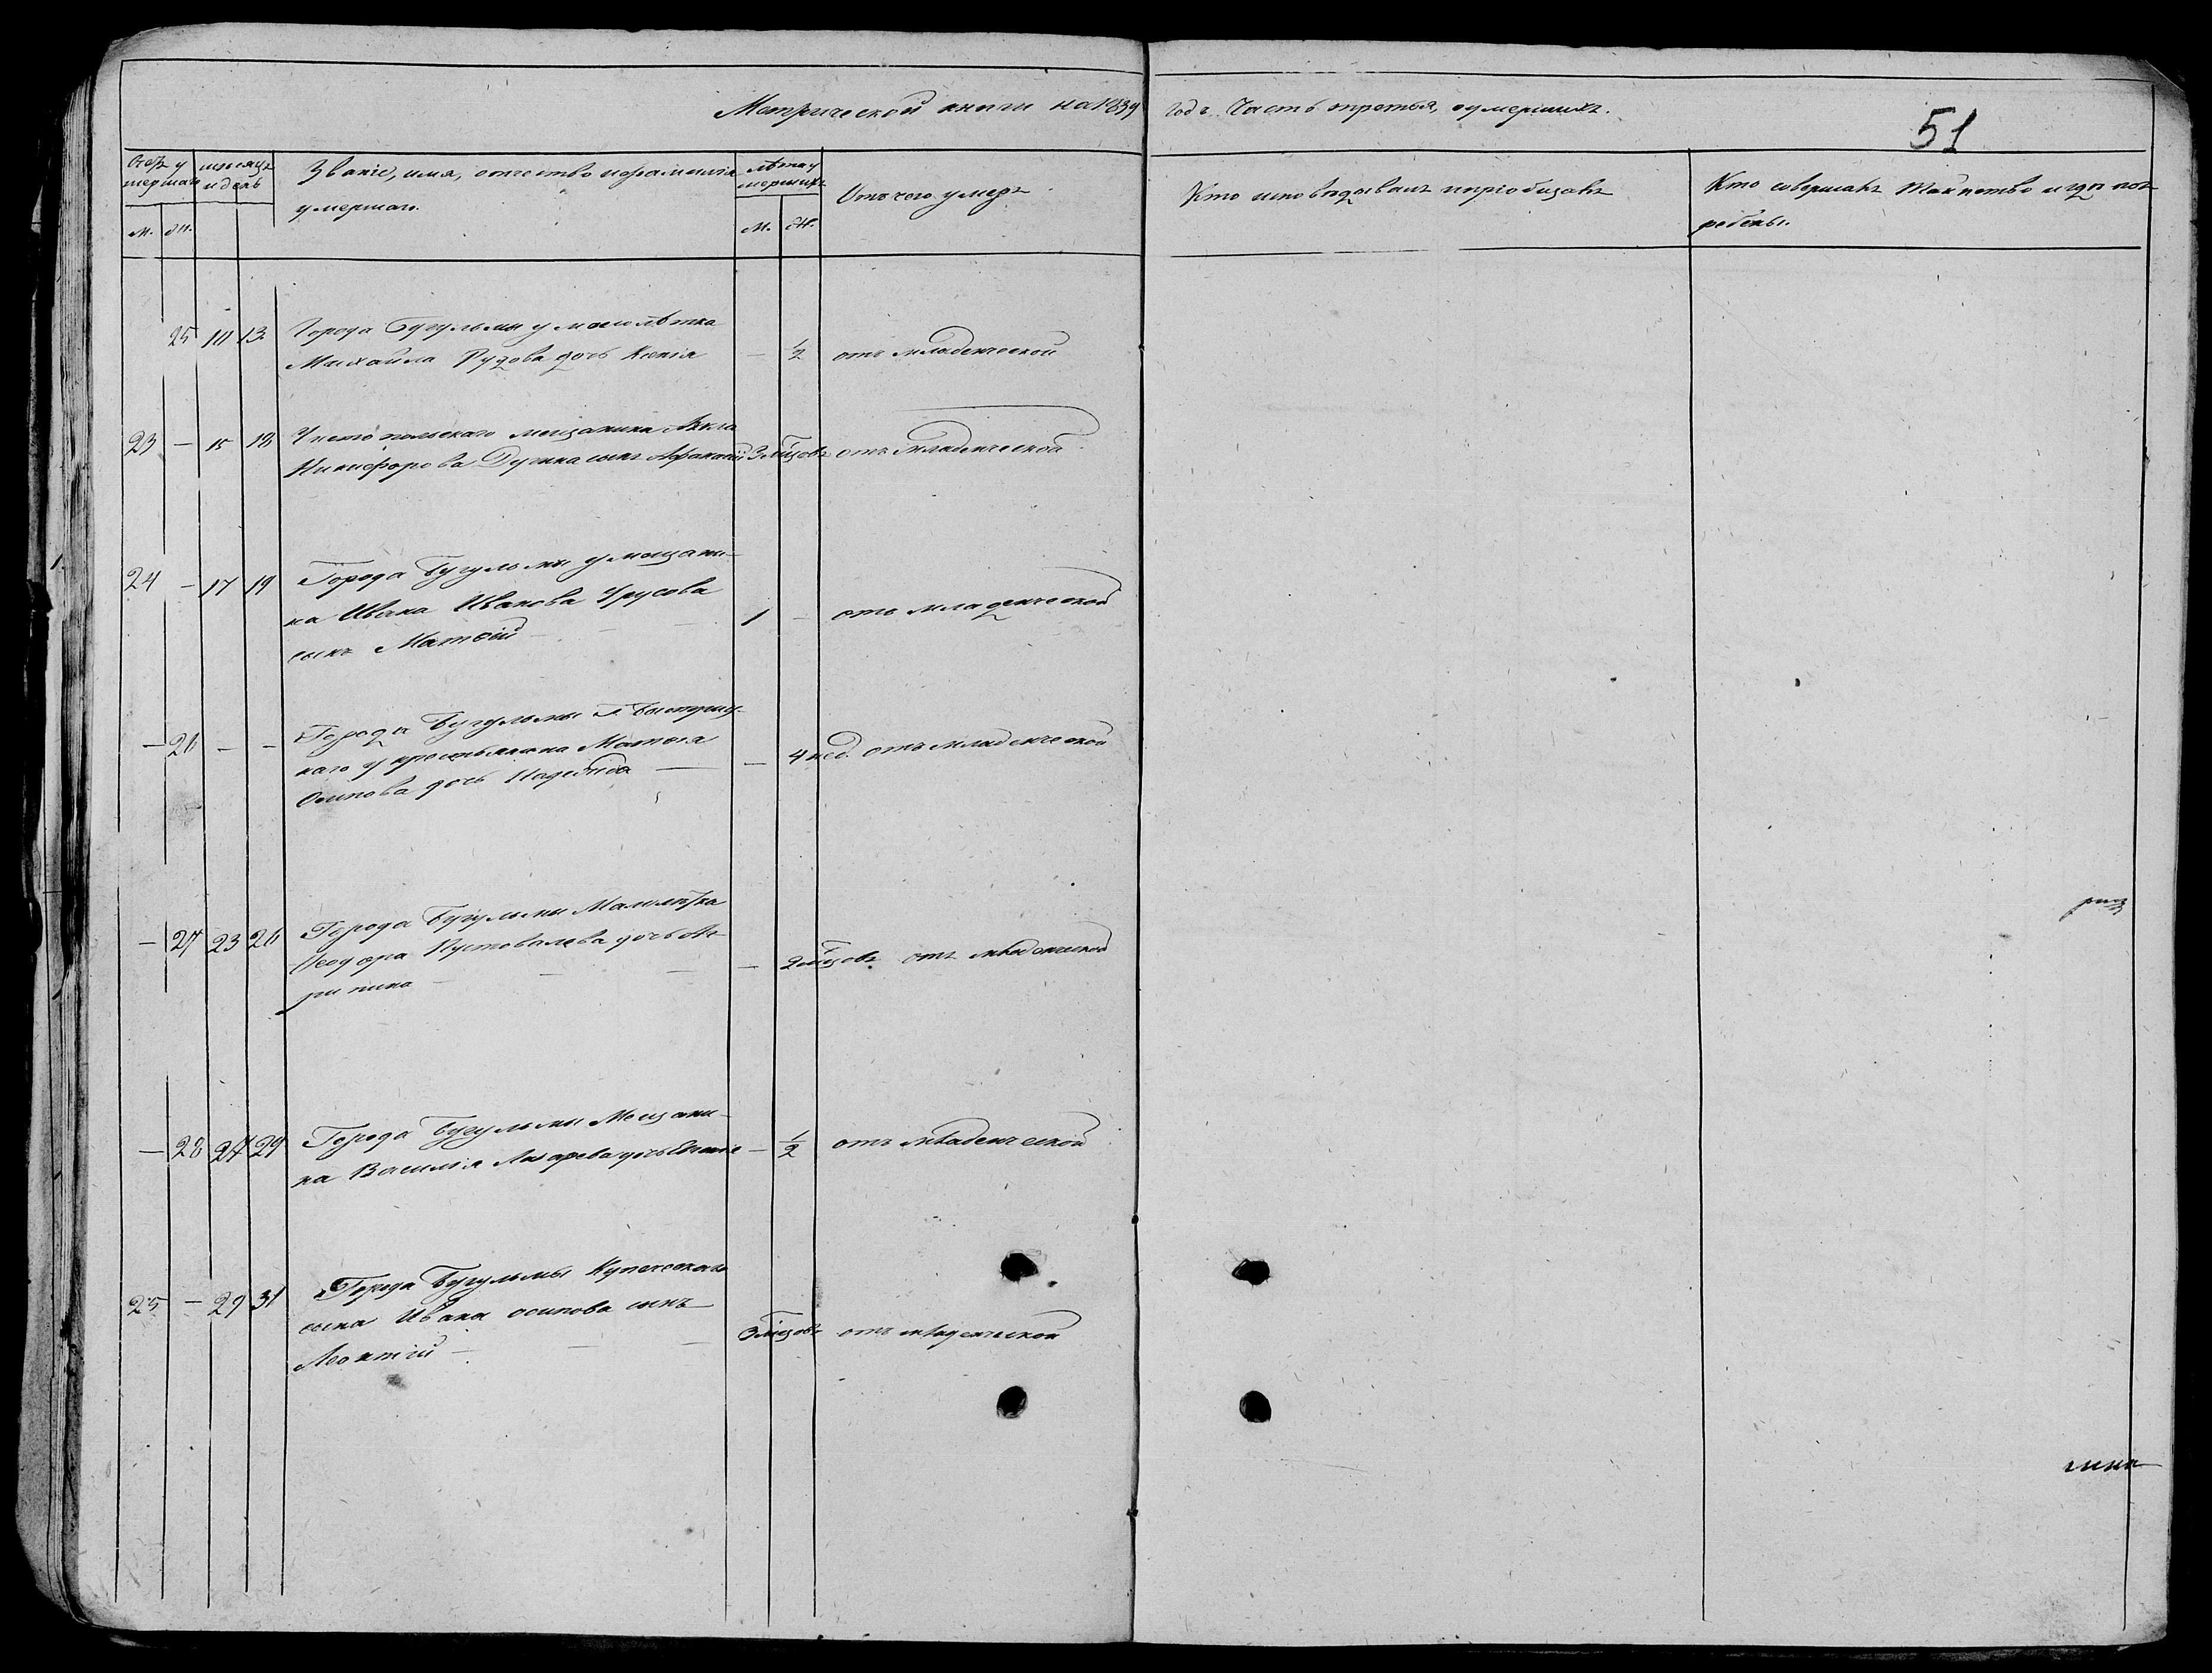 Метрической книги на 1839 годъ. Часть третья, о умершихъ.
51
Счетъ умершихъ
мѣсяцъ и день
Званіе, имя, отчество и фамилія
умершаго.
лѣта умершихъ
Отъ чего умеръ
Кто исповѣдывалъ и пріобщалъ
Кто совершалъ таинство и гдѣ пог-
ребены.
м. ж.
м. ж.
25 13 Города Бугульмы у малолѣтка
Михайла Рузова дочь Ксенія — 1/2 отъ младенческой
23 — 15 18 Чистопольскаго мещанина
Никифорова сынъ Афанасій 3 мѣсцовъ отъ младенческой
24 — 17 19 Города Бугульмы у мещани-
на Ивана Иванова Урусова
сынъ Матѳій — 1 — отъ младенческой
— 26 — — Города Бугульмы
у крестьянина Матвея
Осипова дочь Надежда — — 4 нед. отъ младенческой
— 27 23 26 Города Бугульмы Малолѣтка
Ѳеодора Пустовалова дочь Аг-
рипина — — 2 мѣсцовъ отъ младенческой
— 28 27 29 Города Бугульмы Мещани-
на Василія дочь — 1/2 отъ младенческой
25 — 29 31 Города Бугульмы Купеческаго
сына Ивана осипова сынъ
Леонтій — 3 мѣсцовъ отъ младенческой